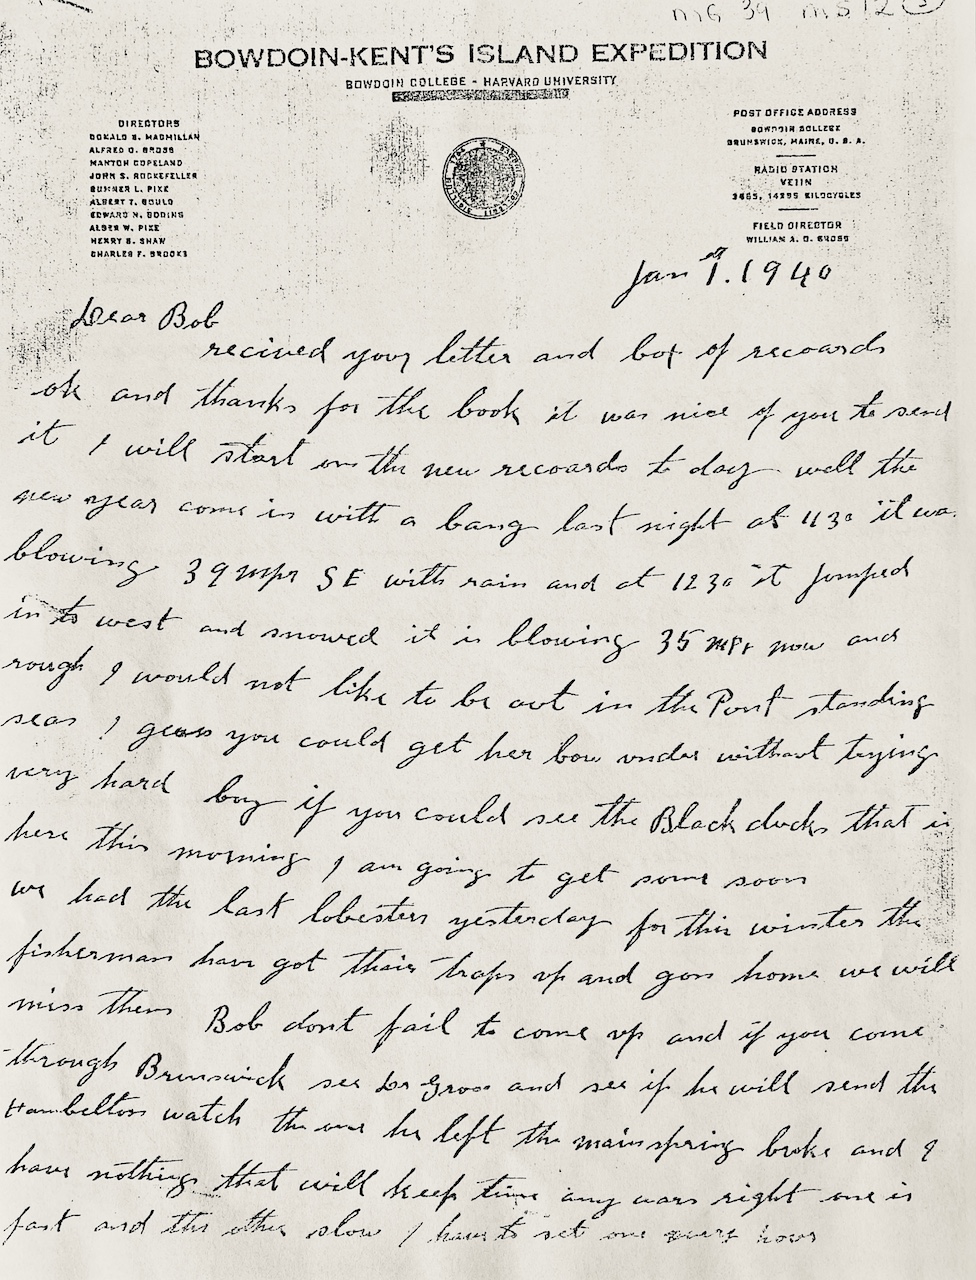 MG 34 MS 12 2
BOWDOIN-KENT'S ISLAND EXPEDITION
BOWDOIN COLLEGE - HARVARD UNIVERSITY
DIRECTORS
DONALD B. MACMILLAN
ALFRED O. GROSS
MANTON COPELAND
JOHN S. ROCKEFELLER
SUMNER L. PIKE
ALBERT T. GOULD
EDWARD N. GODING
ALGER W. PIKE
HENRY B. SHAW
CHARLES F. BROOKS
POST OFFICE ADDRESS
BOWDOIN COLLEGE
BRUNSWICK, MAINE, U. S. A.
RADIO STATION
VE1IN
3465, 14295 KILOCYCLES
FIELD DIRECTOR
WILLIAM A. O. GROSS
Jan 1st. 1940
Dear Bob
recived your letter and box of recoards
ok and thanks for the book it was nice of you to send
it I will start on the new recoards to day well the
new year come in with a bang last night at 1130 it wa
blowing 39 mpr SE with rain and at 1230 it jomped
in to west and snowed it is blowing 35 mpr now and
rough I would not like to be out in the Pont standing
seas I gess you could get her bow under without trying
very hard boy if you could see the Black ducks that is
here this morning I am going to get some soon
we had the last lobesters yesterday for this winter the
fisherman have got thair traps up and gon home we will
miss them Bob dont fail to come up and if you come
through Brunswick see Dr Gross and see if he will send the
Hambelton watch the one he left the mainspring broke and I
have nothing that will keep time any wars right one is
fast and the other slow I have to set one every hour